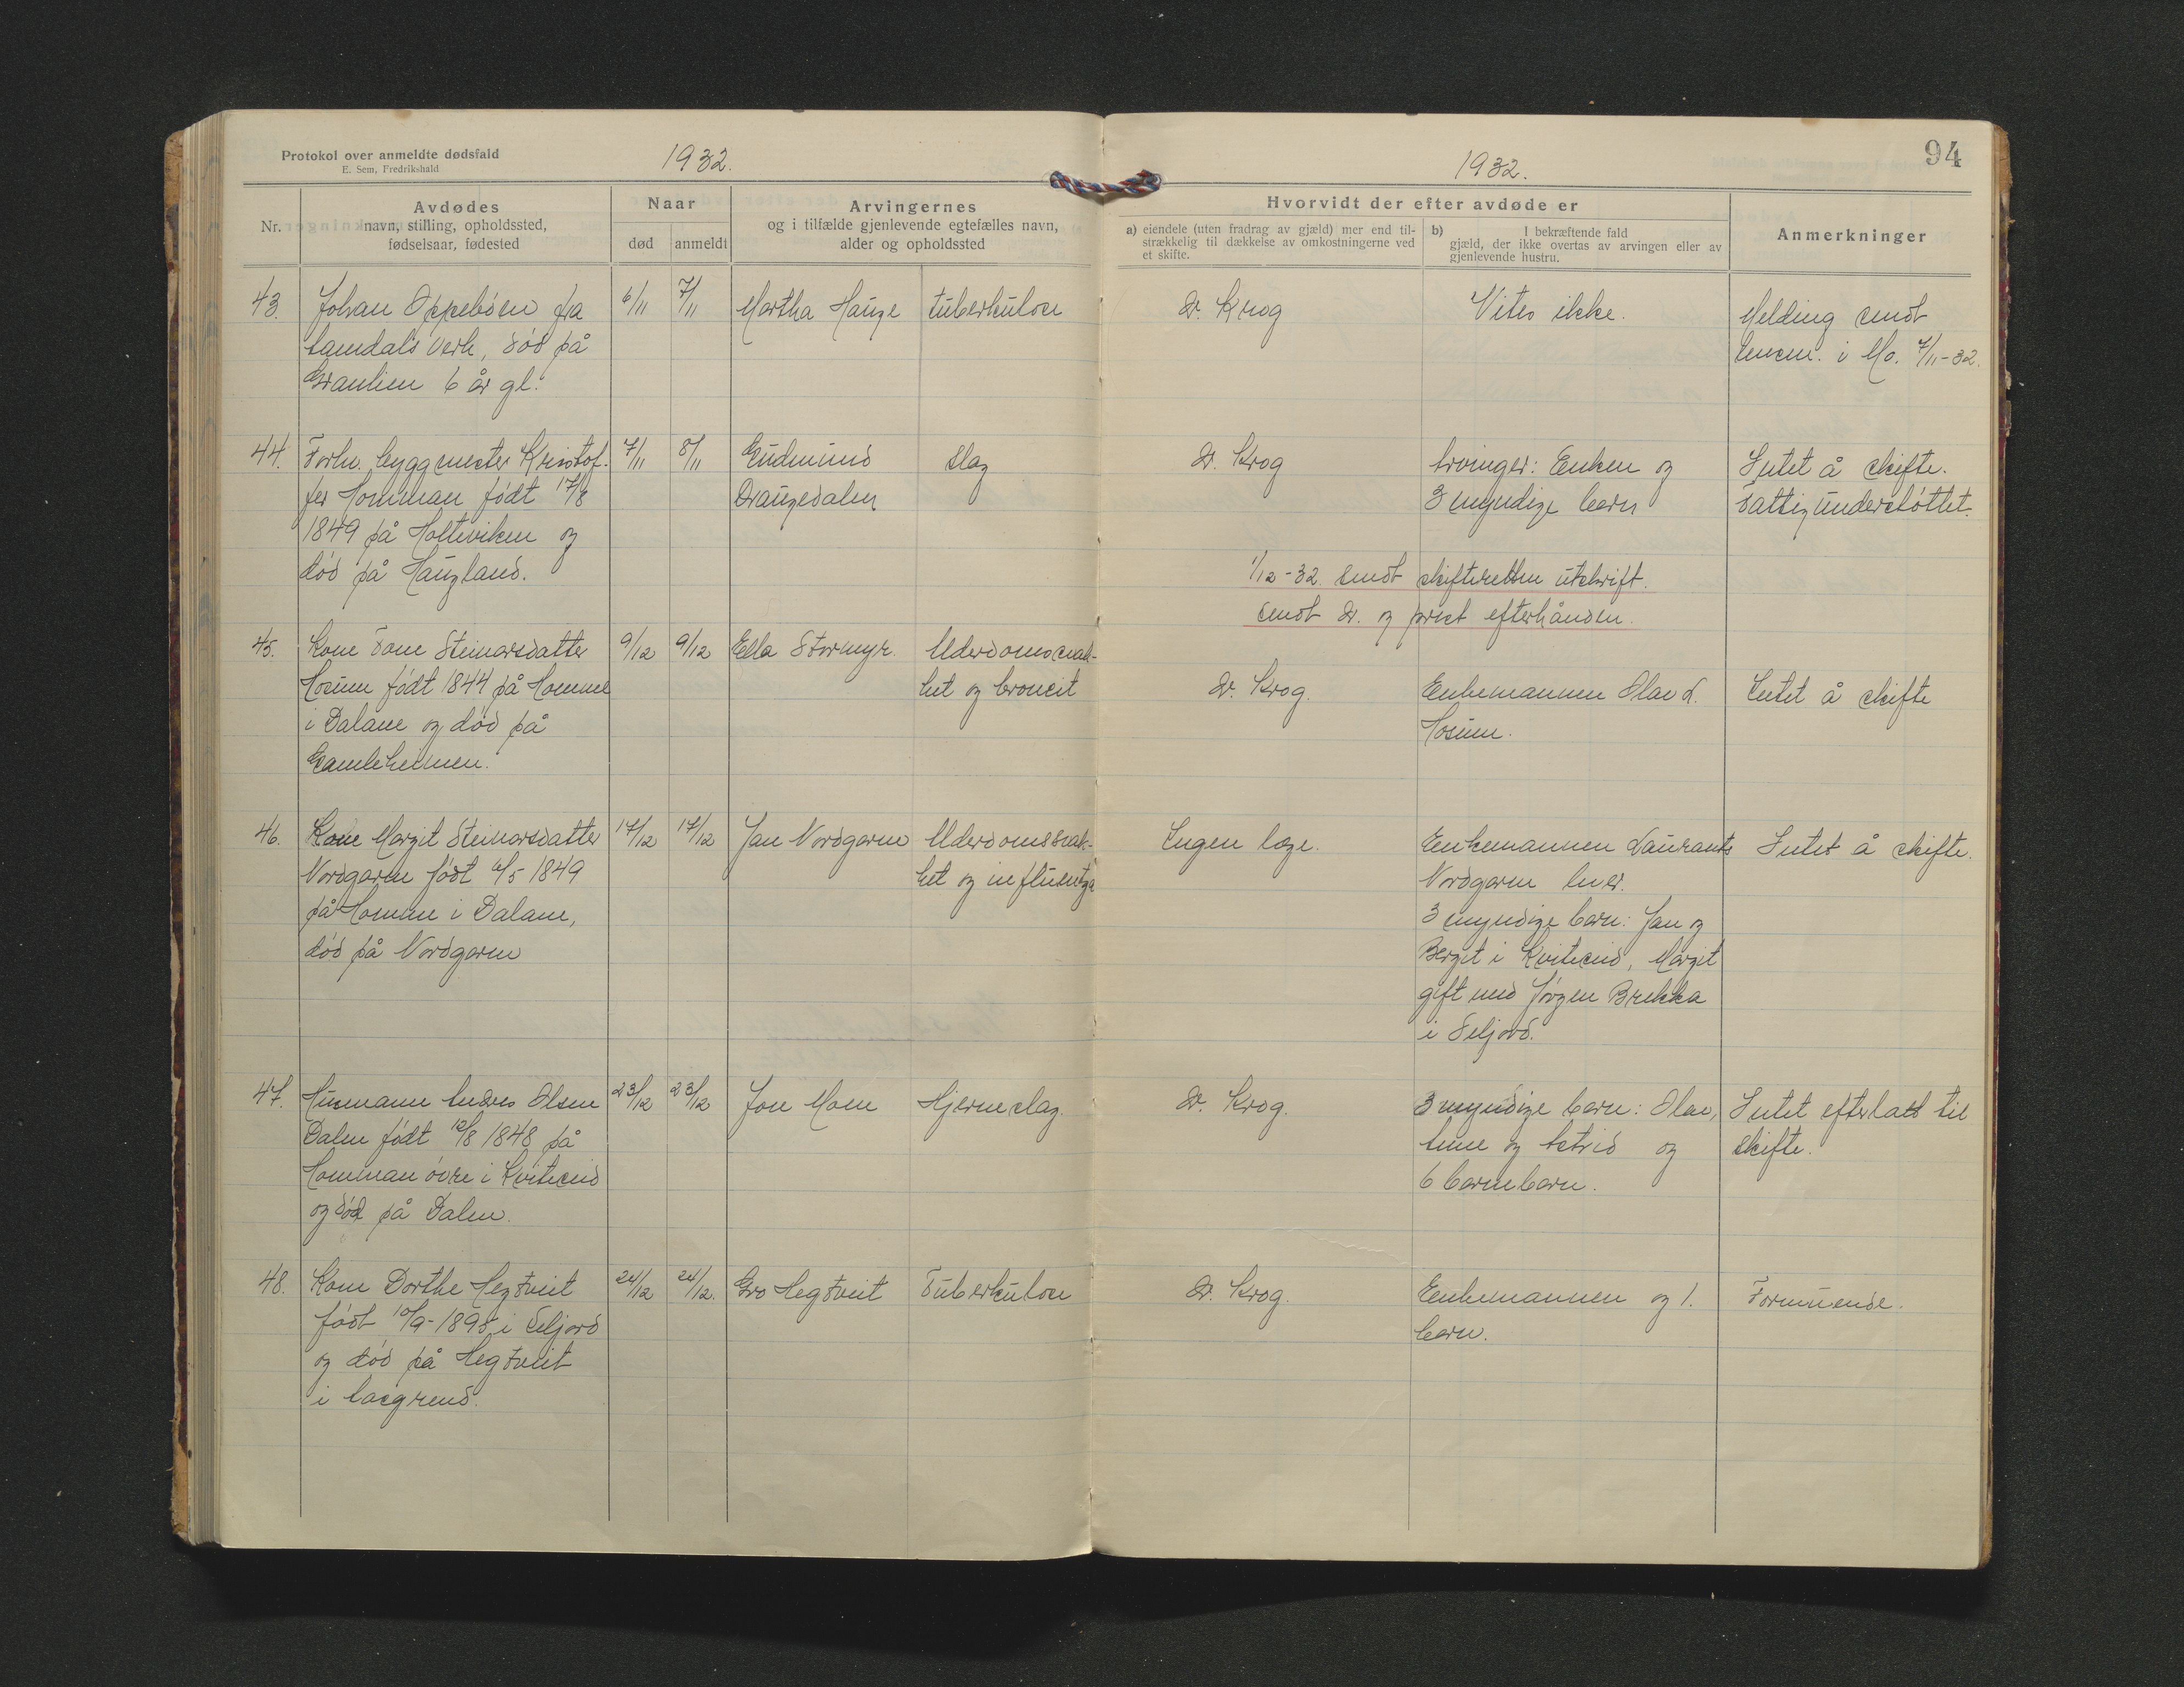 Protokol over anmeldte dødsfald
E. Sem, Fredrikshald
1932.
1932.
94
Nr.
Avdødes
navn, stilling, opholdssted,
fødselsaar, fødested
Naar
død
anmeldt
Arvingernes
og i tilfælde gjenlevende egtefælles navn,
alder og opholdssted
Hvorvidt der efter avdøde er
a) eiendele (uten fradrag av gjæld) mer end til-
strækkelig til dækkelse av omkostningerne ved
et skifte.
b) I bekræftende fald
gjæld, der ikke overtas av arvingen eller av
gjenlevende hustru.
Anmerkninger
43. Johan Oppebøen fra 6/11 7/11 Martha Hauge tuberkulose Dr. Krog Vites ikke. Melding sendt
Åmdals verk, død på lensm. i Mo. 7/11-32.
Granlien 6 år gl.
44. Forhv. byggmester Kristof- 7/11 8/11 Gudmund slag Dr. Krog Arvinger: Enken og Intet å skifte.
fer Homman født 17/8 Draugedalen 3 myndige barn Fattigunderstøttet.
1849 på Holteviken og
død på Haugland. 1/12-32 sendt skifteretten utskrift.
sendt dr. og prest efterhånden.
45. Kone Tone Steinarsdatter 9/12 9/12 Ella Stormyr. Alderdomssvak-
Mosum født 1844 på Homme het og broncit Dr. Krog. Enkemannen Olav L. Intet å skifte
i Dalane og død på Mosum.
Gamleheimen.
46. Kone Margit Steinarsdatter 17/12 17/12 Jan Nordgaren Alderdomssvak- Ingen læge. Enkemannen Laurants Intet å skifte.
Nordgaren født 6/5 1849 het og influentza Nordgaren lever.
på Homme i Dalane, 3 myndige barn: Jan og
død på Nordgaren Bergit i Kviteseid, Margit
gift med Jørgen Brekka
i Seljord.
47. Husmann Andres Olsen 23/12 23/12 Jon Moen Hjerneslag. Dr. Krog. 3 myndige barn: Olav, Intet efterlatt til
Dalen født 12/8 1848 på Anne og Astrid og skifte.
Homman øvre i Kviteseid 6 barnebarn.
og død på Dalen.
48. Kone Dorthe Hegtveit 24/12 24/12. Gro Hegtveit Tuberkulose Dr. Krog. Enkemannen og 1. Formuende.
født 10/9-1895 i Seljord barn.
og død på Hegtveit
i Åsgrend.